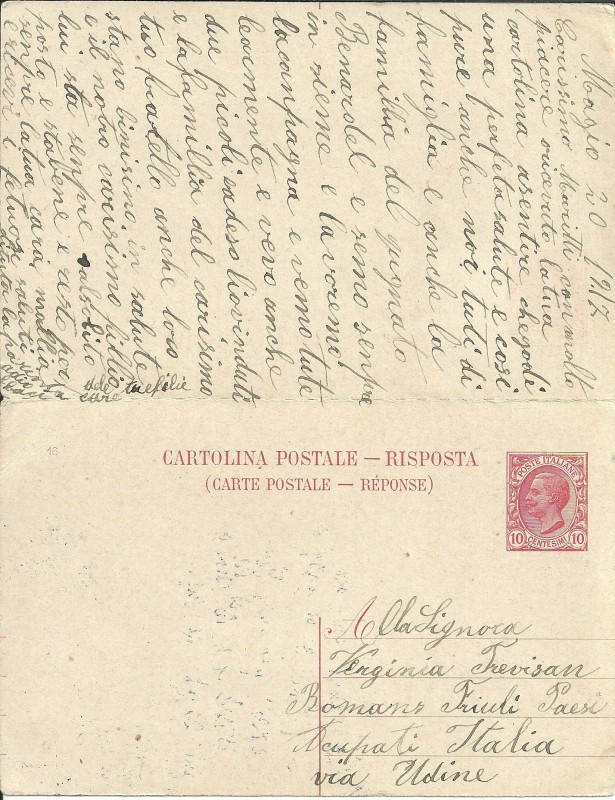 Magio 20 1917
Carissimo Marito con molto
piacere ricevete la tua
cartolina asentire che godi
una perfeta salute e cosi
pure anche noi tuti di
famiglia e anche la
familia del qugnato
Benardel e semo senpre
in sieme e lavoremo
la canpagna e vemo tute
learmente e vevo anche
due picoli eadeso liovinduti
e la familia del carisimo
tuo fratello anche loro
stano binisimo in salute
e il nostro carisimo fillio
lui sta senpre
posto e stabene e resto per
senpre la tua cara mollia
recevi i fetuosi saluti
tue filie
care
16
CARTOLINA POSTALE — RISPOSTA
(CARTE POSTALE — RÉPONSE)
POSTE ITALIANE
10 CENTESIMI 10
Alla Signora
Verginia Trevisan
Romans Friuli Paesi
Acupati Italia
via Udine